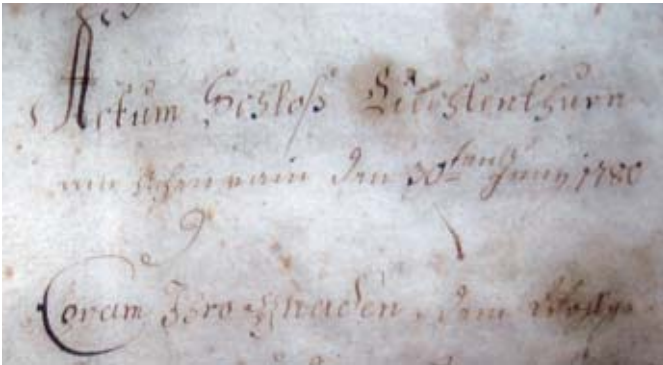 Actum Schloß Liechtenthurn
am Schenrain den 30 tens Juny 1780
Coram Ihro Gnaden, dem